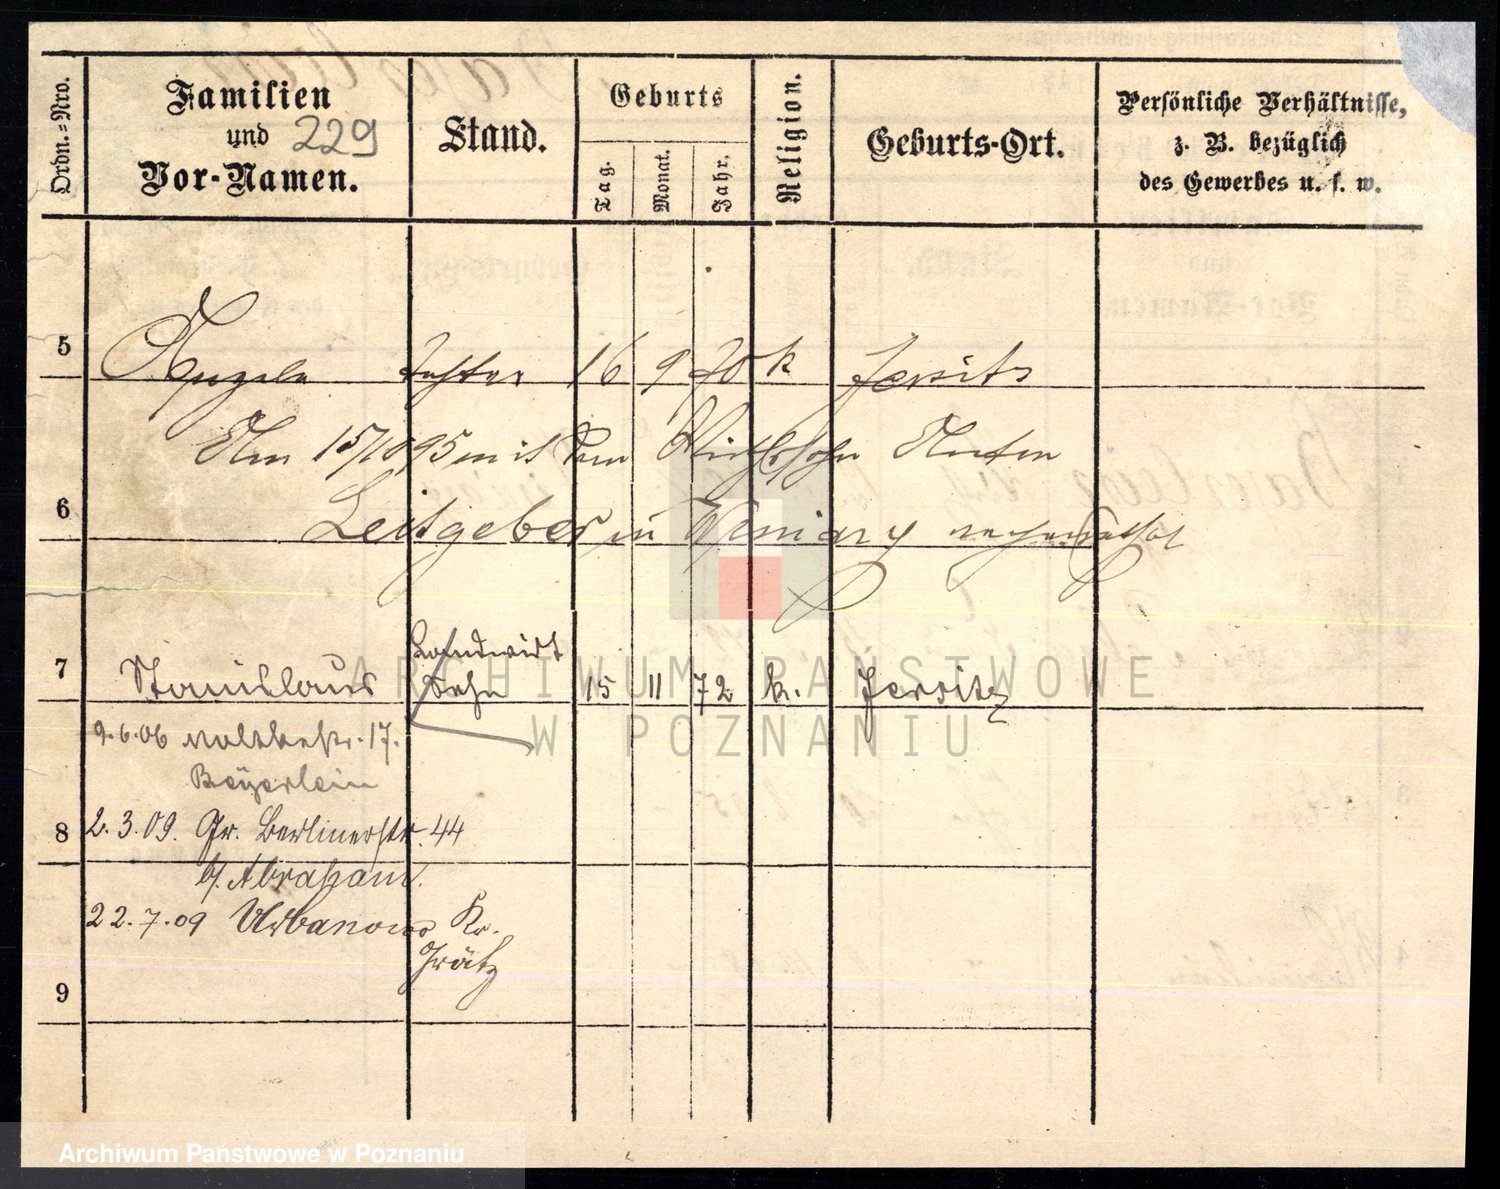 Ordn.=Nro.
Familien
und 229
Vor-Namen.
Stand.
Geburts
Tag.
Monat.
Jahr.
Religion.
Geburts-Ort.
Persönliche Verhältnisse,
z. B. bezüglich
des Gewerbes u. s. w.
5 Tochter 16 9 70 k Jersitz
Am 15/10 95 mit dem Wirthssohn Anton
6 Leitgeber in Winiary verheirathet
Landwirt
7 Stanislaus Sohn 15 11 72 k. Jersitz
9.6.06 Moltkestr. 17.
Beyerlein
8 2.3.09. Gr. Berlinerstr. 44
b/ Abraham.
22.7.09 Urbanowo Kr.
Grätz
9
ARCHIWUM PAŃSTWOWE
W POZNANIU
Archiwum Państwowe w Poznaniu